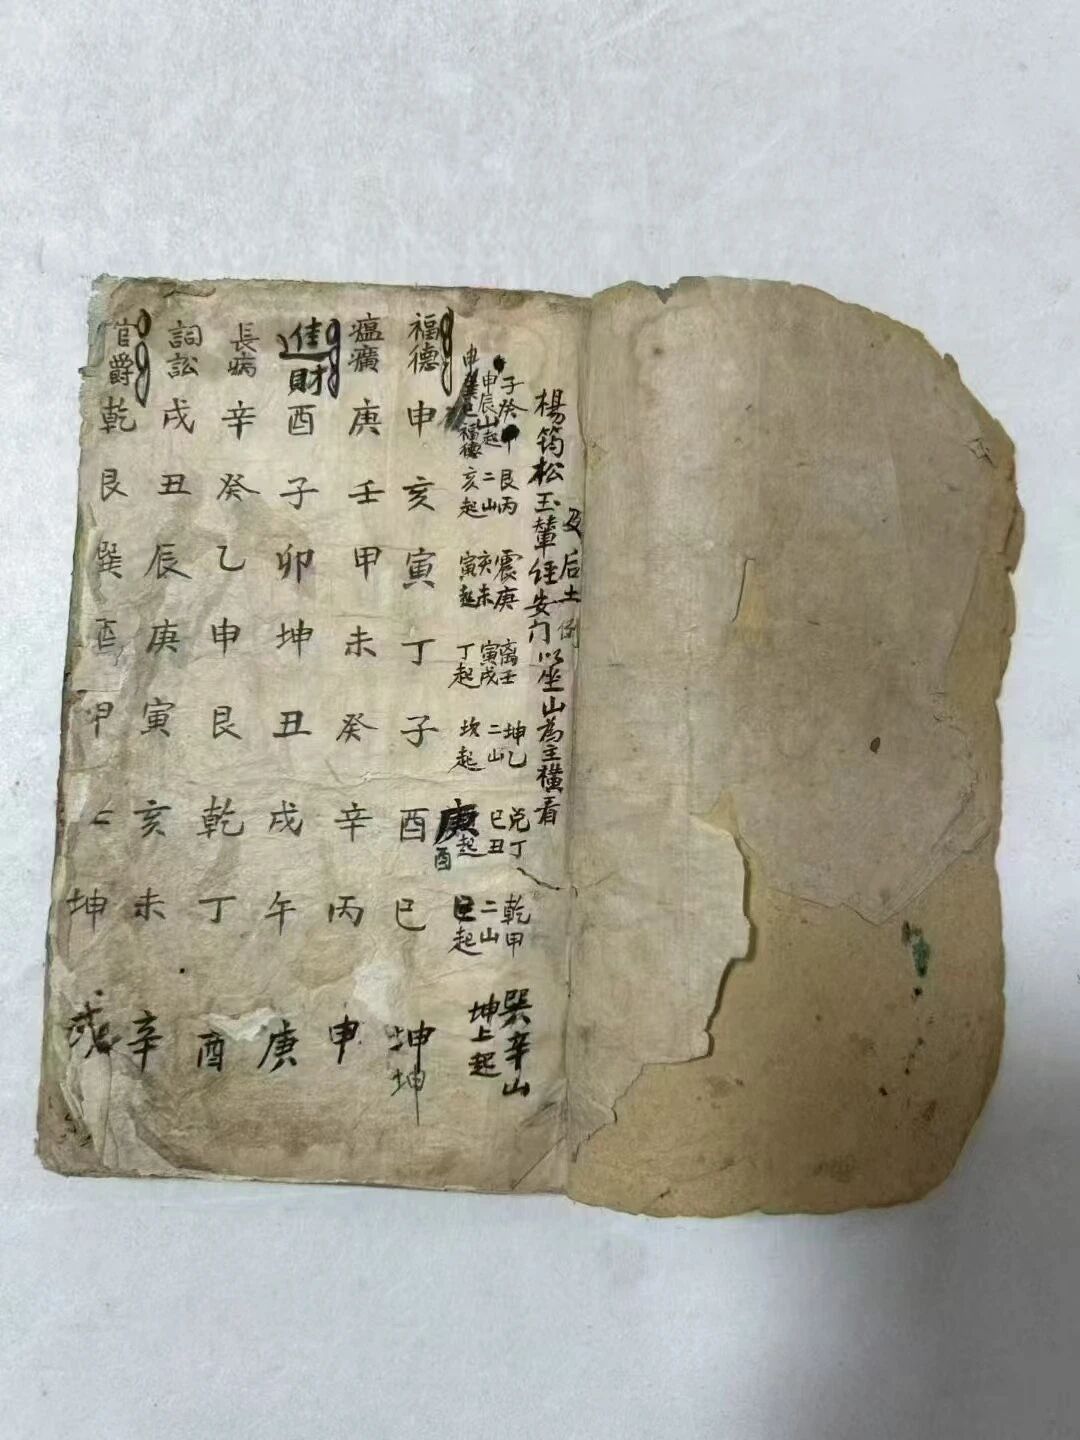 楊筠松玉輦经安门以坐山為主横看
及后土例
子癸甲申辰山起申巽巳福德
艮丙二山亥起
震庚亥未寅起
离壬寅戌丁起
坤乙二山坎起
兑丁巳丑庚起酉
乾甲二山巳起
巽辛山坤上起
福德申亥寅丁子酉巳坤坤
瘟㾱庚壬甲未癸辛丙申
進財酉子卯坤丑戌午庚
長病辛癸乙申艮乾丁酉
詞訟戌丑辰庚寅亥未辛
官爵乾艮巽酉甲坤戌